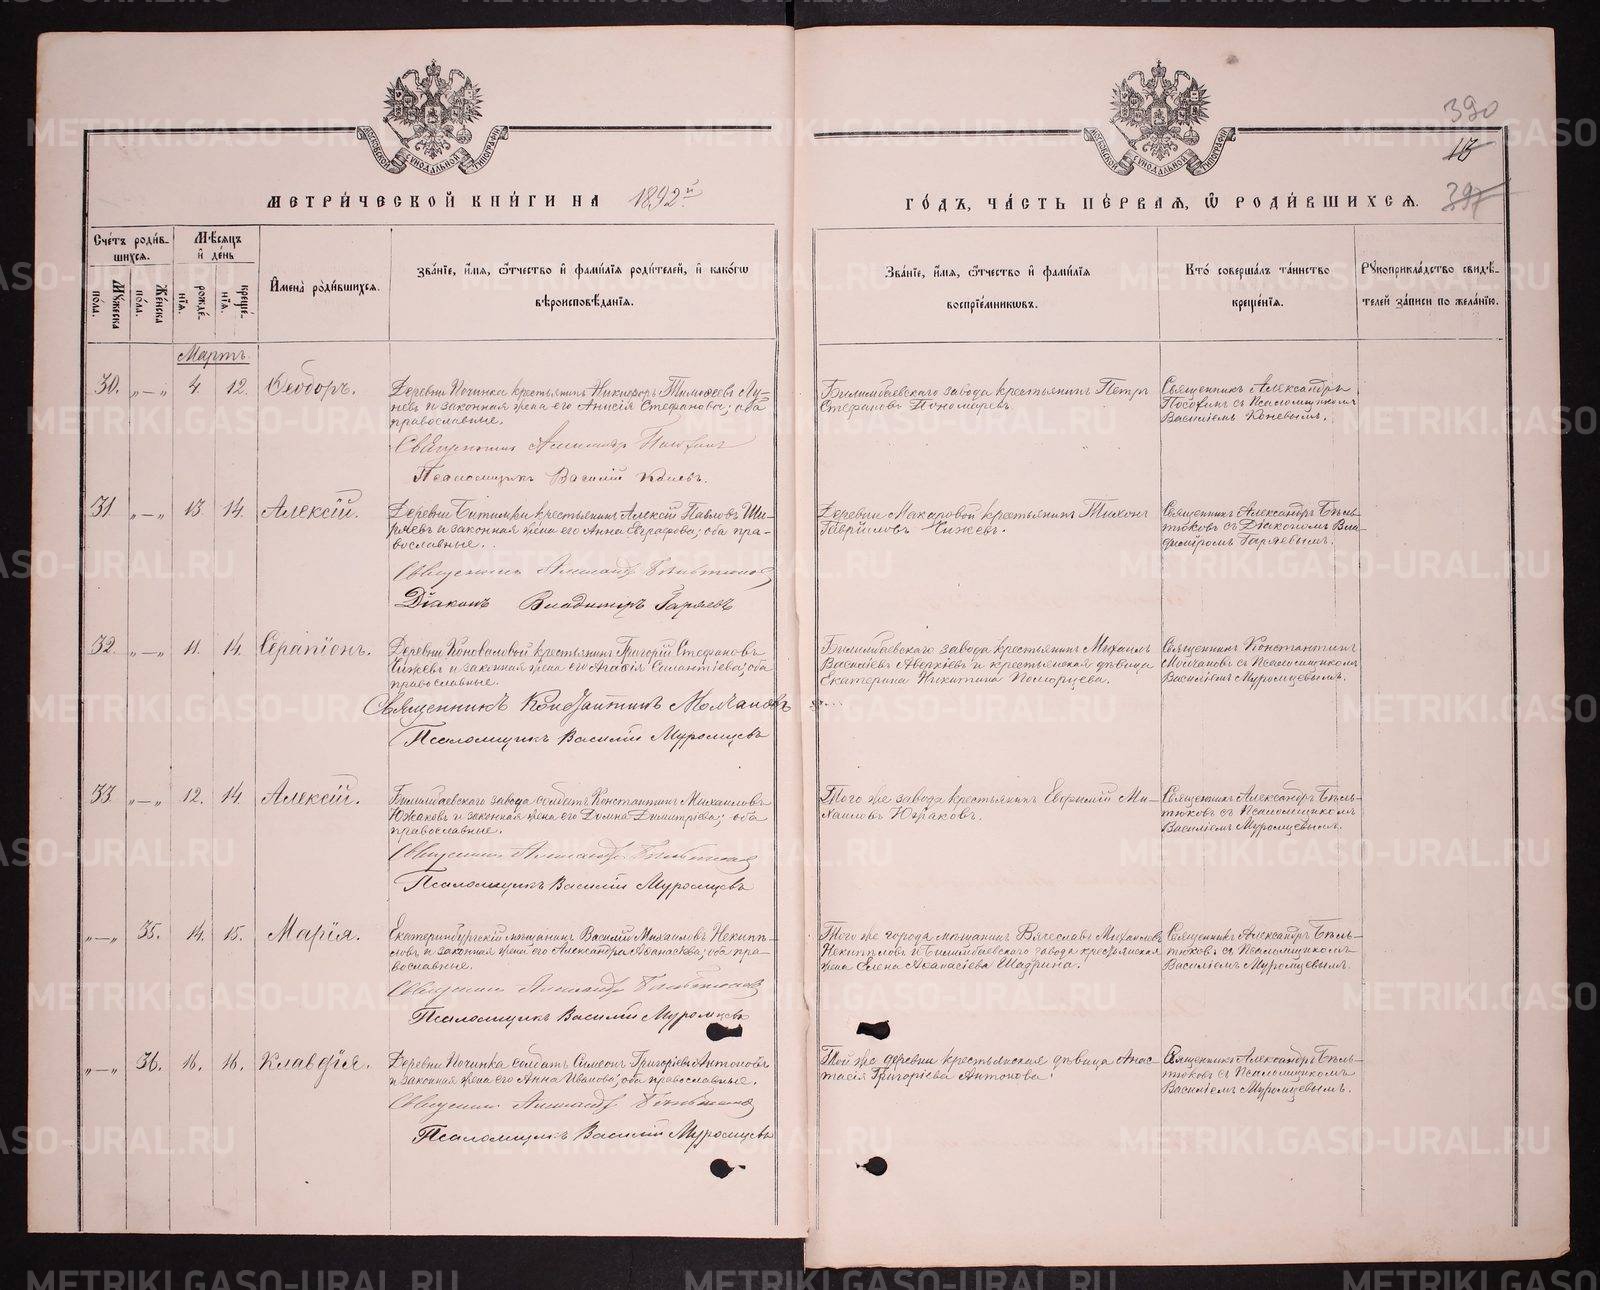 390
13
397
МОСКОВСКОЙ СѴНОДАЛЬНОЙ ТИПОГРАФІИ
МОСКОВСКОЙ СѴНОДАЛЬНОЙ ТИПОГРАФІИ
МЕТРИ́ЧЕСКОЙ КНИ́ГИ НА 1892й
ГО́ДЪ, ЧА́СТЬ ПЕ́РВАЯ, Ѡ РОДИ́ВШИХСЯ.
Сче́тъ роди́в-
шихся.
Му́жеска
по́ла.
Же́нска
по́ла.
Мѣ́сяцъ
и҆ де́нь
рожде́-
нїя.
креще́-
нїя.
И҆мена̀ роди́вшихся.
Зва́нїе, и҆́мя, ѻ҆́тчество и҆ фами́лїя роди́телей, и҆ како́гѡ
вѣроисповѣ́данїя.
Зва́нїе, и҆́мя, ѻ҆́тчество и҆ фами́лїя
воспрїе́мникѡвъ.
Кто̀ соверша́лъ та́инство
креще́нїя.
Рꙋкоприкла́дство свидѣ́-
телей за́писи по жела́нїю.
Мартъ.
30. „—„ 4. 12. Ѳеодоръ.
Деревни Починка крестьянинъ Никифоръ Тимоѳеевъ Лу-
невъ и законная жена его Анисія Стефанова; оба
православные.
Священникъ Александръ
Псаломщикъ Василій Коневъ.
Билимбаевскаго завода крестьянинъ Петръ
Стефановъ Пономаревъ
Священникъ Александръ
съ Псаломщикомъ
Василіемъ Коневымъ.
31. „—„ 13 14. Алексій.
Деревни Битимки крестьянинъ Алексій Павловъ Ши-
ряевъ и законная жена его Анна Евграфова; оба пра-
вославные.
Священникъ Александръ Бѣльтюковъ
Діаконъ Владиміръ Гаряевъ
Деревни Макаровой крестьянинъ Тихонъ
Гавріиловъ Чижевъ.
Священникъ Александръ Бѣль-
тюковъ съ Діакономъ Вла-
диміромъ Гаряевымъ.
32. „—„ 11. 14. Серапіонъ.
Деревни Коноваловой крестьянинъ Григорій Стефановъ
Чижевъ и законная жена его Агаѳія; оба
православные.
Священникъ Константинъ Молчановъ
Псаломщикъ Василій Муромцевъ
Билимбаевскаго завода крестьянинъ Михаилъ
Василіевъ Аверкіевъ и крестьянская дѣвица
Екатерина Никитина Поморцева.
Священникъ Константинъ
Молчановъ съ Псаломщикомъ
Василіемъ Муромцевымъ.
33. „—„ 12. 14. Алексій.
Билимбаевскаго завода солдатъ Константинъ Михаиловъ
Южаковъ и законная жена его Домна Димитріева; оба
православные.
Священникъ Александръ Бѣльтюковъ
Псаломщикъ Василій Муромцевъ
Того же завода крестьянинъ Евфимій Ми-
хаиловъ Южаковъ.
Священникъ Александръ Бѣль-
тюковъ съ Псаломщикомъ
Василіемъ Муромцевымъ.
„—„ 35. 14. 15. Марія.
Екатеринбургскій мѣщанинъ Василій Михаиловъ Некипѣ-
ловъ и законная жена его Александра Аѳанасіева; оба пра-
вославные.
Священникъ Александръ Бѣльтюковъ
Псаломщикъ Василій Муромцевъ
Того же города мѣщанинъ Вячеславъ Михаиловъ
Некипѣловъ и Билимбаевскаго завода крестьянская
жена Елена Аѳанасіева Шадрина.
Священникъ Александръ Бѣль-
тюковъ съ Псаломщикомъ
Василіемъ Муромцевымъ.
„—„ 36. 16. 16. Клавдія.
Деревни Починка солдатъ Симеонъ Григоріевъ Антоновъ
и законная жена его Анна Иванова; оба православные.
Священникъ Александръ Бѣльтюковъ
Псаломщикъ Василій Муромцевъ
Той же деревни крестьянская дѣвица Анас-
тасія Григоріева Антонова.
Священникъ Александръ Бѣль-
тюковъ съ Псаломщикомъ
Василіемъ Муромцевымъ.
METRIKI.GASO-URAL.RU